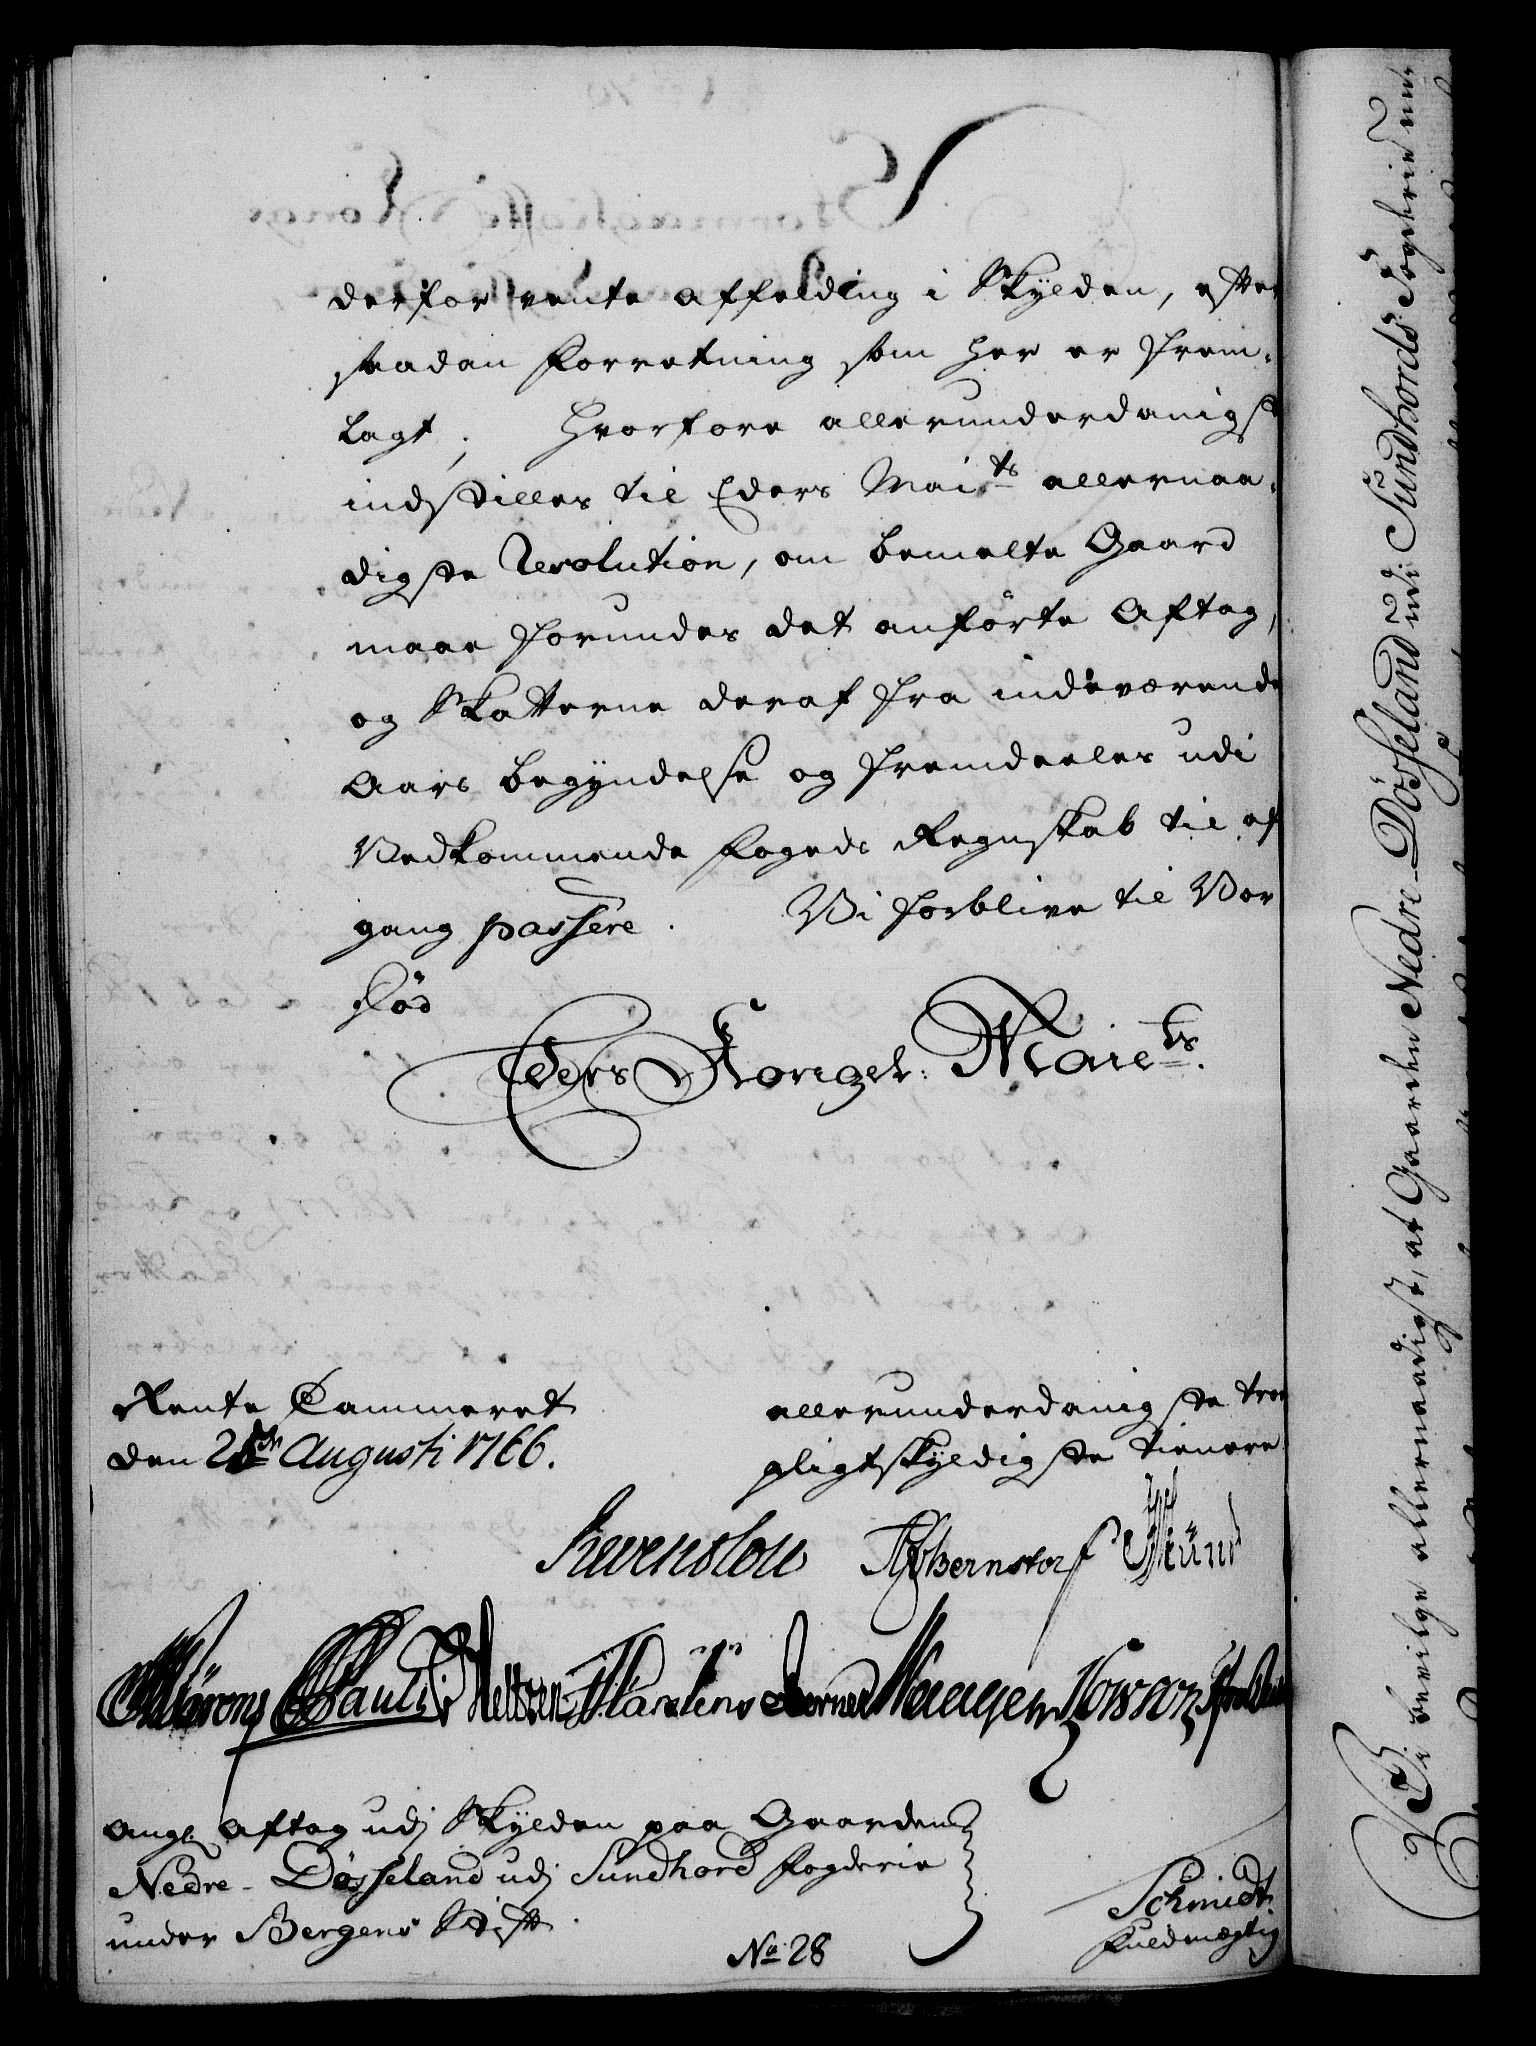 derfor vente affelding i Skylden, efter
saadan Forretning som her er frem-
lagt; Hvorfore allerunderdanigst
indstilles til Eders Mai<sup>ts</sup> allernaa-
digste Resolution, om bemelte Gaard
maae forundes det anførte Aftag,
og Skatterne deraf fra indeværende
Aars begyndelse og fremdeeles udi
Vedkommende Fogeds Regnskab til af
gang passere. Vi forblive til Vor
død
Eders Kongel: Maie<sup>ts</sup>.
Rente Cammeret
den Augusti 1766.
allerunderdanigste troe
pligtskyldigste tienere
Reventlou AGBernstorf
Paulli Meltzen
Ang: Aftag udj Skylden paa Gaarden
Nedre-Døsseland udj Sundhord Fogderie
under Bergens Stift.
No 28
Schmidt
Fuldmægtig
Vi bevilge allernaadigst, at Gaarden Nedre-Døsseland udi Sundhords Fogderie un-